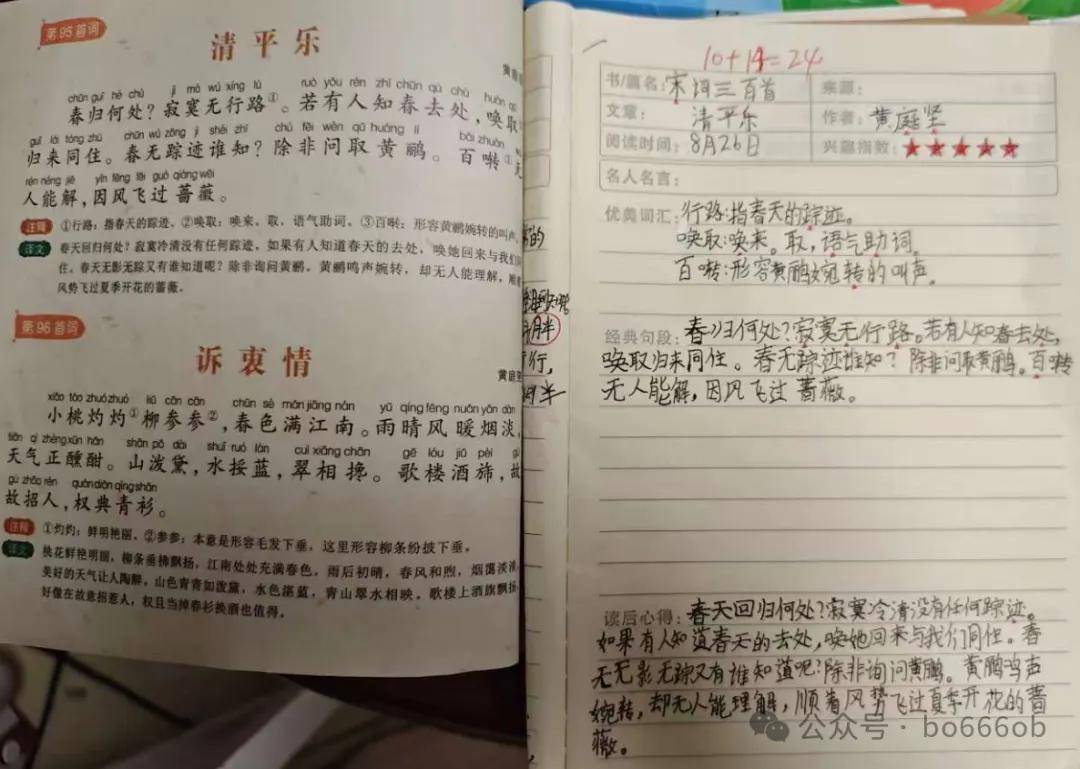 第95首词
清平乐
黄庭
chūn guī hé chù jì mò wú xíng lù ruò yǒu rén zhī chūn qù chù huàn qǔ
春归何处？寂寞无行路①。若有人知春去处，唤取
guī lái tóng zhù chūn wú zōng jì shéi zhī chú fēi wèn qǔ huáng lí bǎi zhuàn
归来同住。春无踪迹谁知？除非问取黄鹂。百啭③无
rén néng jiě yīn fēng fēi guò qiáng wēi
人能解，因风飞过蔷薇。
注释 ①行路：指春天的踪迹。②唤取：唤来。取，语气助词。③百啭：形容黄鹂婉转的叫声。
译文 春天回归何处？寂寞冷清没有任何踪迹。如果有人知道春天的去处，唤她回来与我们同
住。春天无影无踪又有谁知道呢？除非询问黄鹂。黄鹂鸣声婉转，却无人能理解，顺着
风势飞过夏季开花的蔷薇。
第96首词
诉衷情
黄庭坚
xiǎo táo zhuó zhuó liǔ cān cān chūn sè mǎn jiāng nán yǔ qíng fēng nuǎn yān dàn
小桃灼灼①柳参参②，春色满江南。雨晴风暖烟淡，
tiān qì zhèng xūn hān shān pō dài shuǐ ruó lán cuì xiāng chān gē lóu jiǔ pèi gù
天气正醺酣。山泼黛，水挼蓝，翠相搀。歌楼酒旆，故
gù zhāo rén quán diǎn qīng shān
故招人，权典青衫。
注释 ①灼灼：鲜明艳丽。②参参：本意是形容毛发下垂，这里形容柳条纷披下垂。
译文 桃花鲜艳明丽，柳条垂拂飘扬，江南处处充满春色，雨后初晴，春风和煦，烟霭淡淡
美好的天气让人陶醉。山色青青如泼黛，水色湛蓝，青山翠水相映。歌楼上酒旗飘扬
好像在故意招惹人，权且当掉春衫换酒也值得。
胖
行，
月半
10+14=24
书/篇名：宋词三百首 来源：
文章：清平乐 作者：黄庭坚
阅读时间：8月26日 兴趣指数：★★★★★
名人名言：
优美词汇：行路：指春天的踪迹。
唤取：唤来。取，语气助词。
百啭：形容黄鹂婉转的叫声。
经典句段：春归何处？寂寞无行路。若有人知春去处，
唤取归来同住。春无踪迹谁知？除非问取黄鹂。百啭
无人能解，因风飞过蔷薇。
读后心得：春天回归何处？寂寞冷清没有任何踪迹。
如果有人知道春天的去处，唤她回来与我们同住。春
天无影无踪又有谁知道呢？除非询问黄鹂。黄鹂鸣声
婉转，却无人能理解，顺着风势飞过夏季开花的蔷
薇。
公众号 · bo666ob